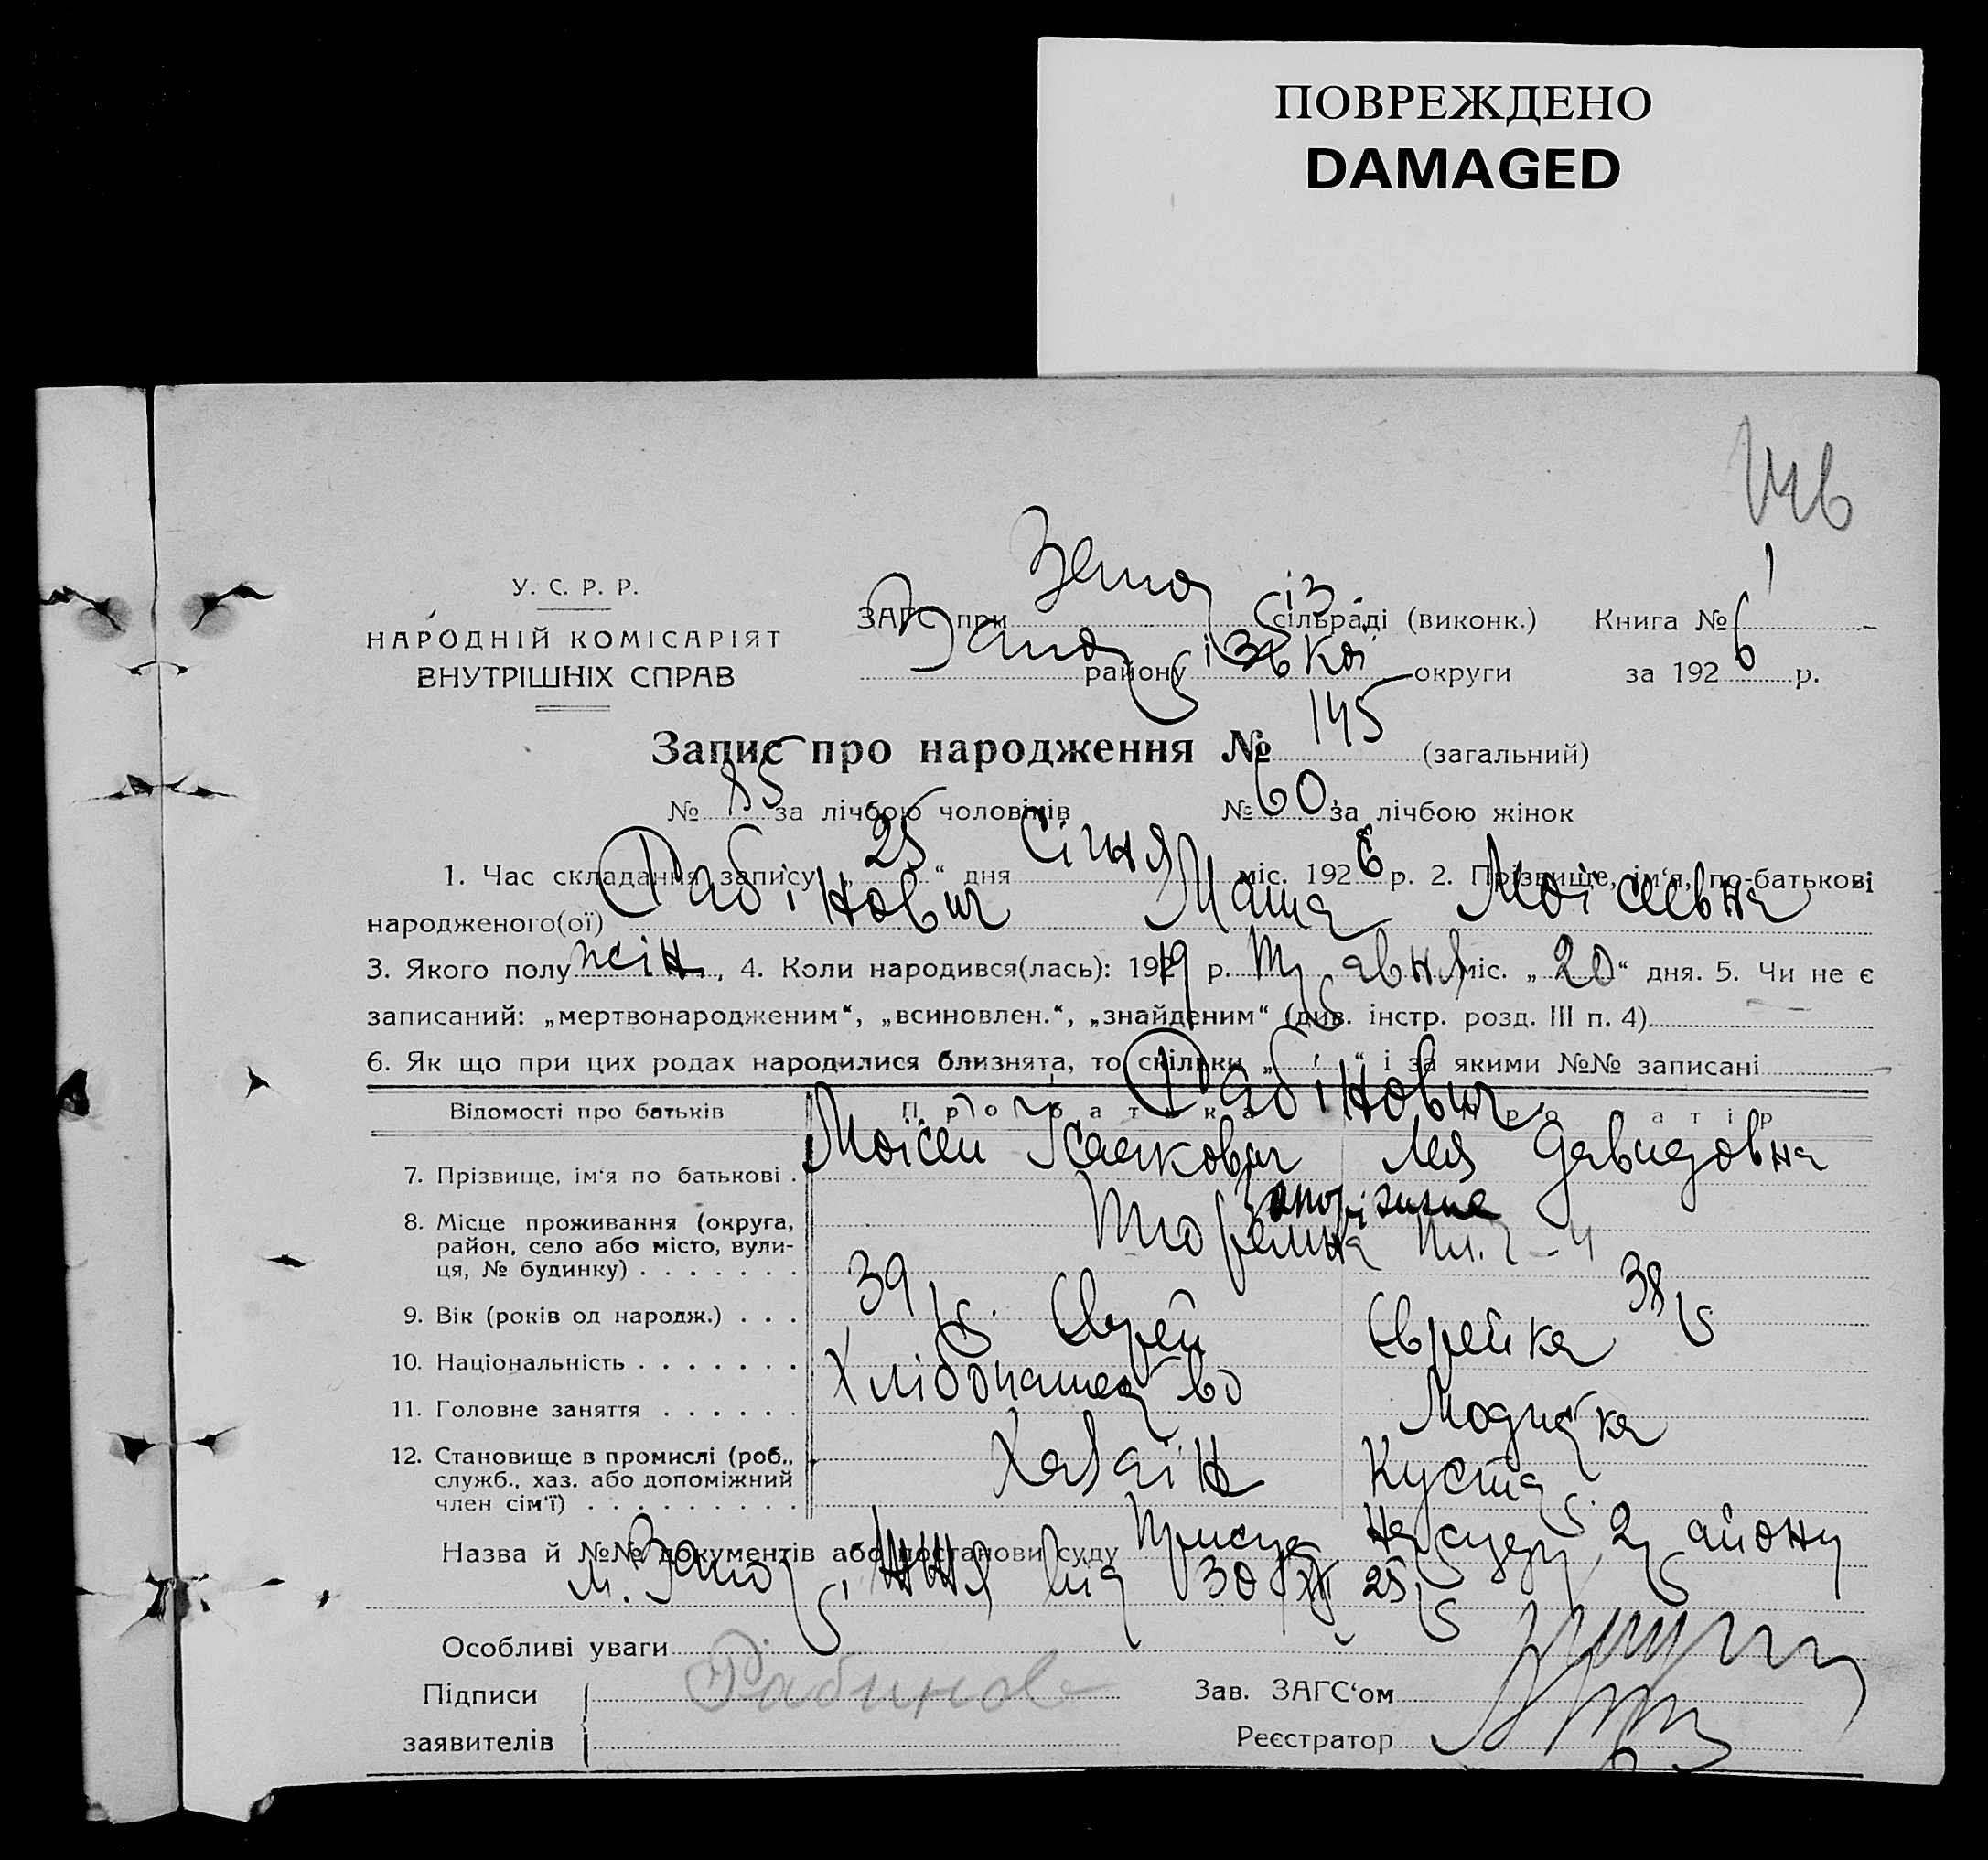 ПОВРЕЖДЕНО
DAMAGED
У. С. Р. Р.
НАРОДНІЙ КОМІСАРІЯТ
ВНУТРІШНІХ СПРАВ
ЗАГС при сільраді (виконк.) Книга № 1
району округи за 1926 р.
Запис про народження № 145 (загальний)
№ 85 за лічбою чоловіків № 60 за лічбою жінок
1. Час складання запису „25“ дня Січня міс. 1926 р. 2. Прізвище, ім‘я, по-батькові
народженого(ої) Рабінович Маша Моісеевна
3. Якого полу жін., 4. Коли народився(лась): 1919 р. Травня міс. „20“ дня. 5. Чи не є
записаний: „мертвонародженим“, „всиновлен.“, „знайденим“ (див. інстр. розд. III п. 4) —
6. Як що при цих родах народилися близнята, то скільки „ “ і за якими №№ записані
Відомості про батьків Про батька Про матір
Рабінович
7. Прізвище, ім‘я по батькові . Моісей Ісаакович Лея Давидовна
8. Місце проживання (округа, район, село або місто, вулиця, № будинку) Запоріжжя
Тюремна пл.
9. Вік (років од народж.) . . . 39 р. 38 р.
10. Національність . . . . . . . Єврей Єврейка
11. Головне заняття . . . . . . Хлібопашество Модистка
12. Становище в промислі (роб.,
служб., хаз. або допоміжний
член сім‘ї) . . . . . . . . . Хазяїн Кустар.
Назва й №№ документів або постанови суду Присуд Нарсуду 2 району
м. Запоріжжя від 30/XII 25 р.
Особливі уваги
Підписи Рабинов Зав. ЗАГС‘ом
заявителів Реєстратор